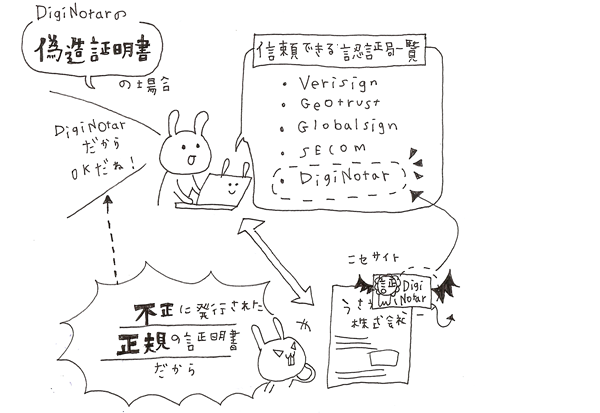 DigiNotarの
偽造証明書
の場合
DigiNotar
だから
OKだね!
信頼できる認証局一覧
・Verisign
・Geotrust
・Globalsign
・SECOM
・DigiNotar
ニセサイト
Digi
Notar
株式会社
不正に発行された
正規の証明書
だから